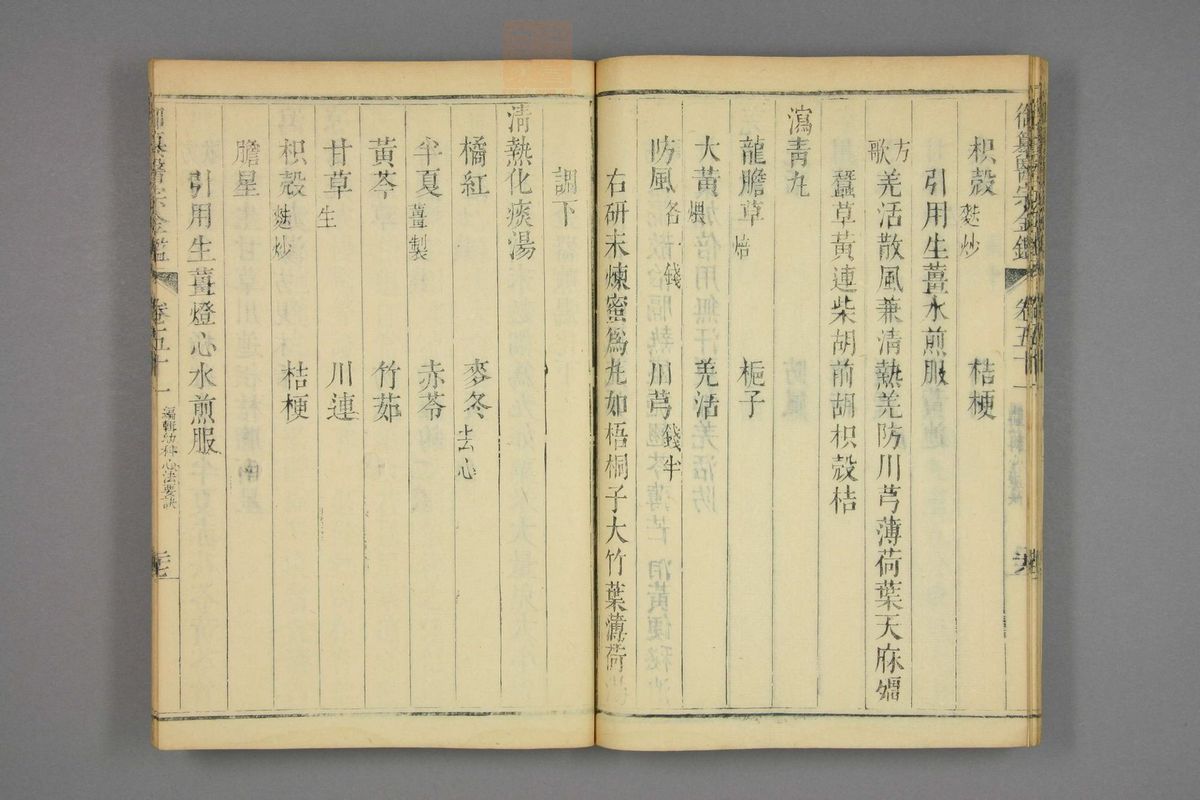 枳殼 麩炒 桔梗
引用生薑水煎服
方歌 羌活散風兼清熱羌防川芎薄荷葉天麻殭
蠶草黃連柴胡前胡枳殼桔
瀉青丸
龍膽草 焙 梔子
大黃 煨 羌活
防風 各一錢 川芎 錢半
右研末煉蜜為丸如梧桐子大竹葉薄荷湯
調下
清熱化痰湯
橘紅 麥冬 去心
半夏 薑製 赤苓
黃芩 竹茹
甘草 生 川連
枳殼 麩炒 桔梗
膽星
引用生薑燈心水煎服
御纂醫宗金鑑 卷五十一 編輯幼科心法要訣